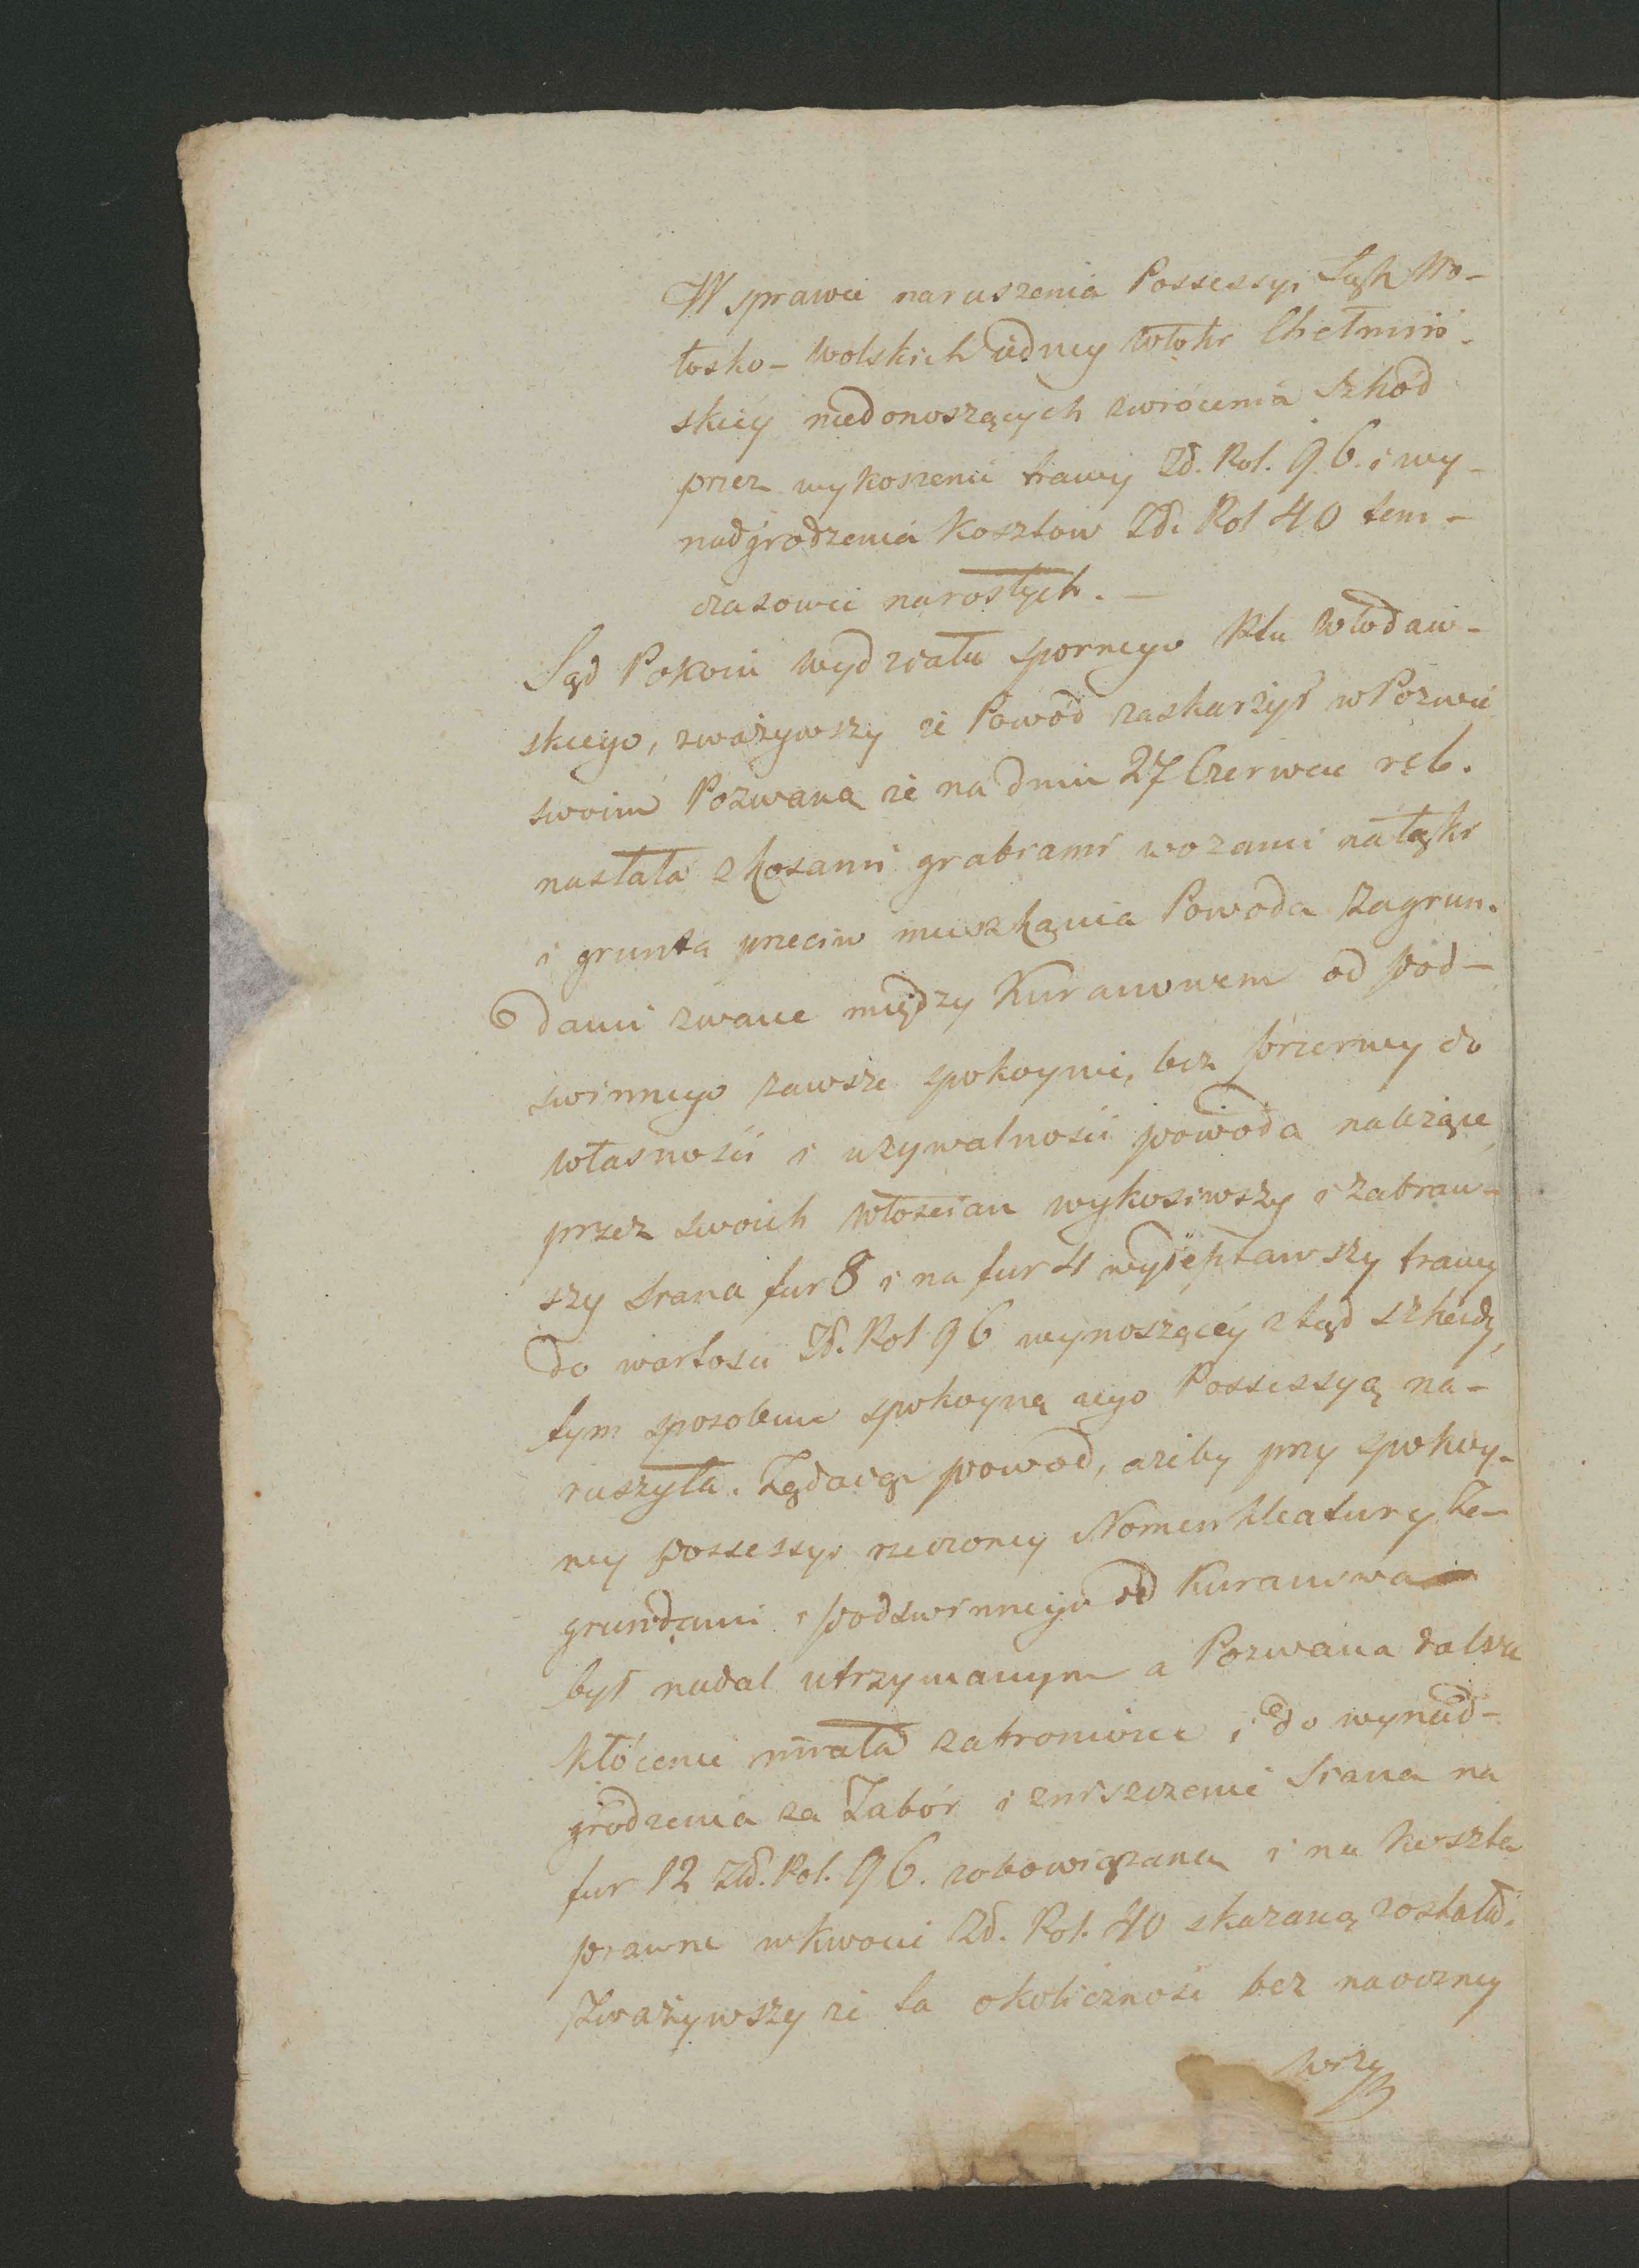 W sprawie naruszenia Possessyi Łąk Wo-
łosko-Wolskich iedney włoki Chełmiń-
skiey niedonoszących zwrócenia szkód
przez wykoszenie trawy Zł. Pol. 96. i wy-
nadgrodzenia kosztow Zł. Pol 40 tem-
czasowie narosłych. —
Sąd Pokoiu wydziału spornego Ptu Włodaw-
skiego, zważywszy że Powód zaskarżył w Pozwie
swoim Pozwaną że na dniu 27 Czerwca r. b.
nasłała z kosami grabiami wozami na łąki
i grunta przeciw mieszkania Powoda zagrun-
dami zwane między Kuranowem od pod-
swinnego zawsze spokoynie, bez przerwy do
własności i używalności powoda należące
przez swoich włościan wykosiwszy i zabraw-
szy siana fur 8 i na fur 4 wydeptawszy trawy
do wartości Zł. Pol 96 wynoszącéy ztąd szkody,
tym sposobem spokoyną iego Possessyą na-
ruszyła. Żądaiąc powod, ażeby przy spokoy-
ney possessyi rzeczoney Nomenklatury Za-
grundami i podswinnego od Kuranowa
był nadal utrzymanym a Pozwana dalsze
kłócenie miała zabronione i do wynad-
grodzenia za Zabór i zniszczenie Siana na
fur 12 Zł. Pol. 96. zobowiązana i na koszta
prawne w kwocie Zł. Pol. 40 skazaną została.
Zważywszy że ta okoliczność bez naoczney
wizy